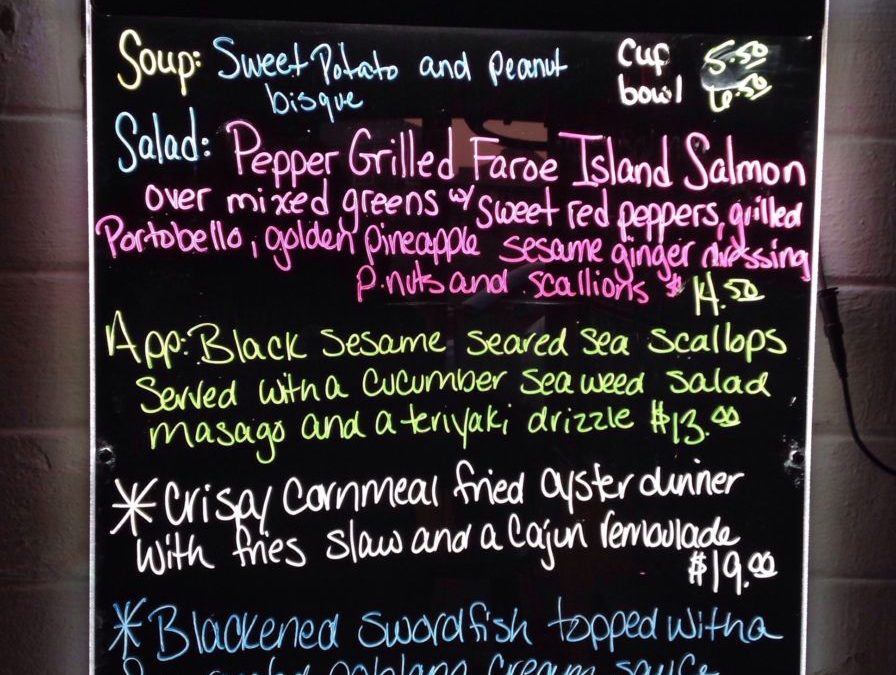 Soup: Sweet Potato and peanut cup 5.50
bisque bowl 6.50
Salad: Pepper Grilled Faroe Island Salmon
over mixed greens w/ sweet red peppers, grilled
Portobello, golden pineapple sesame ginger dressing
P.nuts and scallions $14.50
App: Black sesame seared sea scallops
served with a cucumber seaweed salad
masago and a teriyaki drizzle $13.00
*Crispy Cornmeal fried oyster dinner
with fries slaw and a Cajun remoulade
$19.00
*Blackened swordfish topped with a
poblano cream sauce